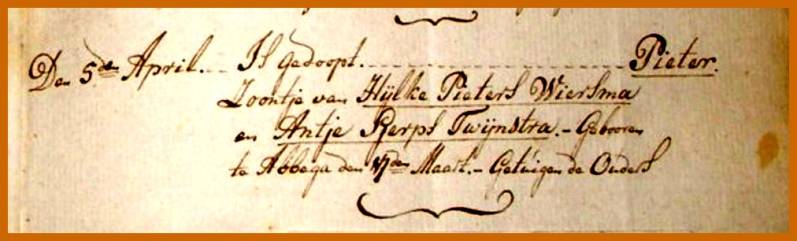 Den 5den April. Is gedoopt. Pieter.
Zoontje van Hijlke Pieters Wiersma
en Antje Sjerps Twijnstra. - Gebooren
te Abbega den den Maart. - Getuigen de Ouders